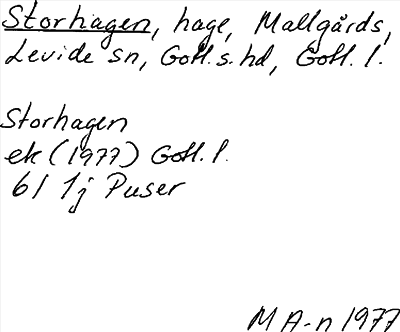 Storhagen, hage, Mallgårds,
Levide sn, Gotl. s. hd, Gotl. l.
Storhagen
ek (1977) Gotl. l.
6I 1j Puser
M A-n 1977